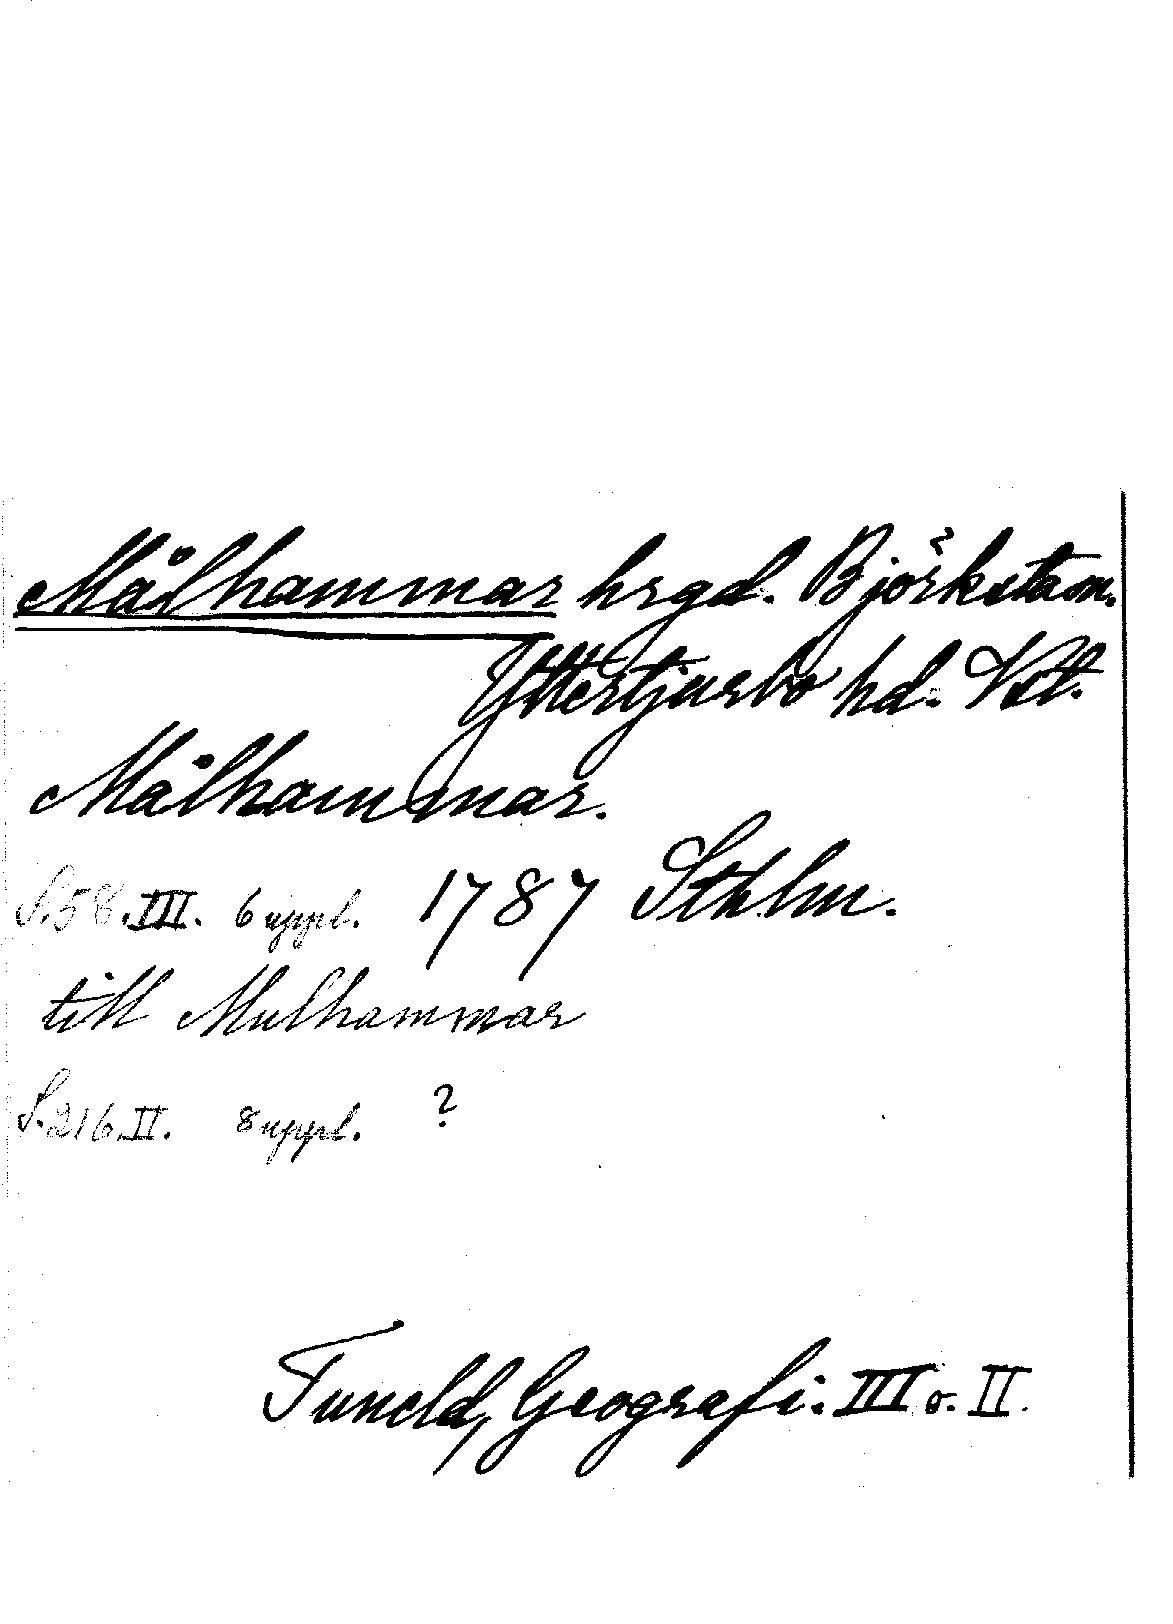 Målhammar hrgd. Björksta sn.
Yttertjurbo hd. Vstl.
Målhammar.
S. 58. III. 6 uppl. 1787 Sthlm.
till Mulhammar
S. 216. II. 8 uppl. ?
Tuneld, Geografi. III o. II.